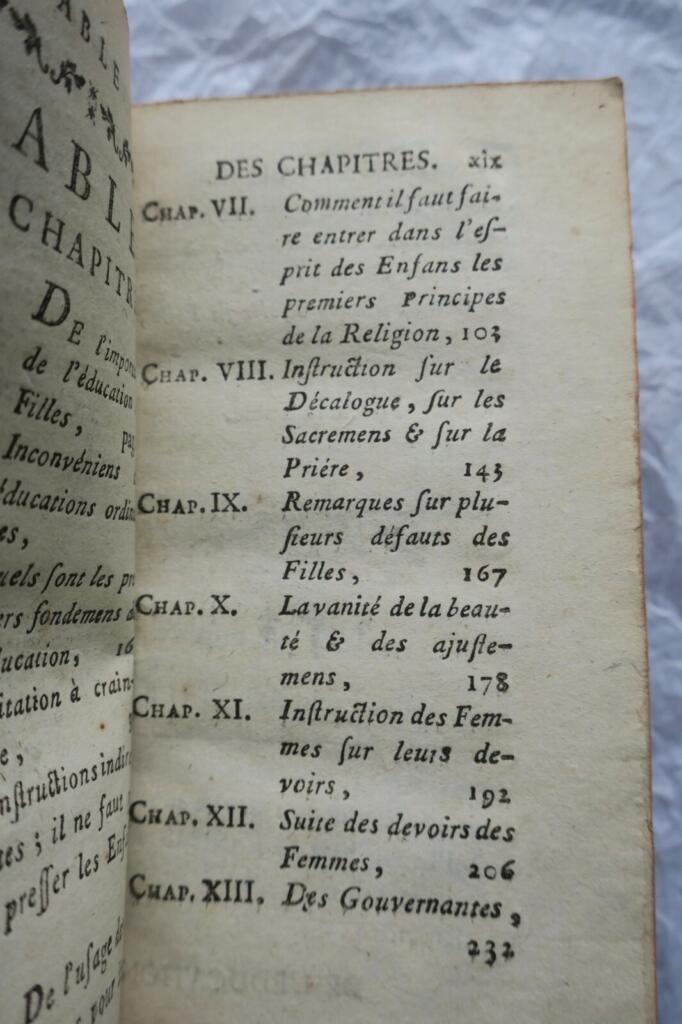 ABLE
ABL
CHAPITR
DE l'impor
de l'éducation
Filles, pa
Inconvéniens
éducations ordi
es,
uels ſont les pr
ers fondemens d
ucation, 16
itation à crain-
e,
nſtructions indir
tes ; il ne faut
preſſer les Enf
De l'uſage de
pour
DES CHAPITRES. xix
CHAP. VII. Comment il faut fai-
re entrer dans l'eſ-
prit des Enfans les
premiers Principes
de la Religion, 103
CHAP. VIII. Inſtruction ſur le
Décalogue, ſur les
Sacremens & ſur la
Priére, 143
CHAP. IX. Remarques ſur plu-
ſieurs défauts des
Filles, 167
CHAP. X. La vanité de la beau-
té & des ajuſte-
mens, 178
CHAP. XI. Inſtruction des Fem-
mes ſur leurs de-
voirs, 192
CHAP. XII. Suite des devoirs des
Femmes, 206
CHAP. XIII. Des Gouvernantes,
232